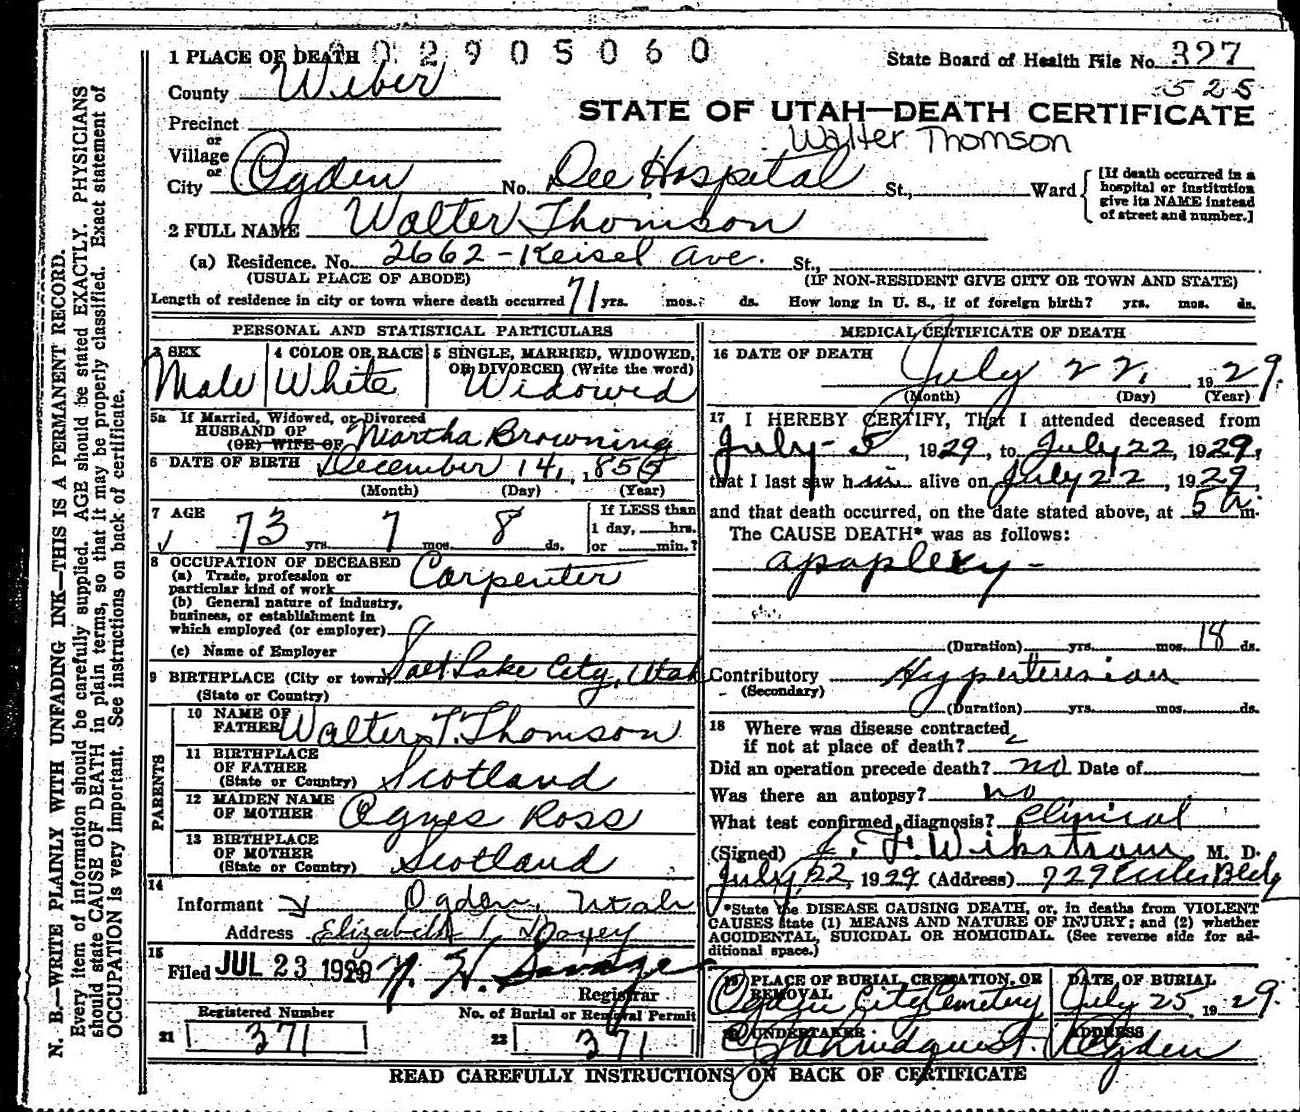 N. B.—WRITE PLAINLY WITH UNFADING INK—THIS IS A PERMANENT RECORD.
Every item of information should be carefully supplied. AGE should be stated EXACTLY. PHYSICIANS
should state CAUSE OF DEATH in plain terms, so that it may be properly classified. Exact statement of
OCCUPATION is very important. See instructions on back of certificate.
1 PLACE OF DEATH 02905060
State Board of Health File No. 327
525
County Weber
STATE OF UTAH—DEATH CERTIFICATE
Walter Thomson
Precinct
or
Village
or
City Ogden No. Dee Hospital St., Ward
[If death occurred in a
hospital or institution
give its NAME instead
of street and number.]
2 FULL NAME Walter Thomson
(a) Residence. No. 2662 - Keisel Ave. St.,
(USUAL PLACE OF ABODE) (IF NON-RESIDENT GIVE CITY OR TOWN AND STATE)
Length of residence in city or town where death occurred 71 yrs. mos. ds. How long in U. S., if of foreign birth? yrs. mos. ds.
PERSONAL AND STATISTICAL PARTICULARS
3 SEX Male
4 COLOR OR RACE White
5 SINGLE, MARRIED, WIDOWED,
OR DIVORCED (Write the word)
Widowed
5a If Married, Widowed, or Divorced
HUSBAND OF
(OR) WIFE OF Martha Browning
6 DATE OF BIRTH December 14, 1855
(Month) (Day) (Year)
7 AGE 73 yrs. 7 mos. 8 ds.
If LESS than
1 day, hrs.
or min.?
8 OCCUPATION OF DECEASED
(a) Trade, profession or
particular kind of work Carpenter
(b) General nature of industry,
business, or establishment in
which employed (or employer)
(c) Name of Employer
9 BIRTHPLACE (City or town) Salt Lake City, Utah
(State or Country)
PARENTS
10 NAME OF
FATHER Walter T. Thomson
11 BIRTHPLACE
OF FATHER
(State or Country) Scotland
12 MAIDEN NAME
OF MOTHER Agnes Ross
13 BIRTHPLACE
OF MOTHER
(State or Country) Scotland
14
Informant Ogden, Utah
Address Elizabeth T. Doxey
15
Filed JUL 23 1929
Registrar
Registered Number
21 371
No. of Burial or Removal Permit
22 371
MEDICAL CERTIFICATE OF DEATH
16 DATE OF DEATH July 22, 1929.
(Month) (Day) (Year)
17 I HEREBY CERTIFY, That I attended deceased from
July - 5, 1929, to July 22, 1929,
that I last saw him alive on July 22, 1929,
and that death occurred, on the date stated above, at 5 a. m.
The CAUSE DEATH* was as follows:
apoplexy -
(Duration) yrs. mos. 18 ds.
Contributory Hypertension
(Secondary)
(Duration) yrs. mos. ds.
18 Where was disease contracted
if not at place of death?
Did an operation precede death? no Date of
Was there an autopsy? no
What test confirmed diagnosis? Clinical
(Signed) J. F. Wikstrom M. D.
July 22, 1929 (Address) 729 Eccles Bldg
*State the DISEASE CAUSING DEATH, or, in deaths from VIOLENT
CAUSES state (1) MEANS AND NATURE OF INJURY; and (2) whether
ACCIDENTAL, SUICIDAL OR HOMICIDAL. (See reverse side for ad-
ditional space.)
19 PLACE OF BURIAL, CREMATION, OR
REMOVAL
Ogden City Cemetery
DATE OF BURIAL
July 25, 1929.
20 UNDERTAKER
ADDRESS
Ogden
READ CAREFULLY INSTRUCTIONS ON BACK OF CERTIFICATE